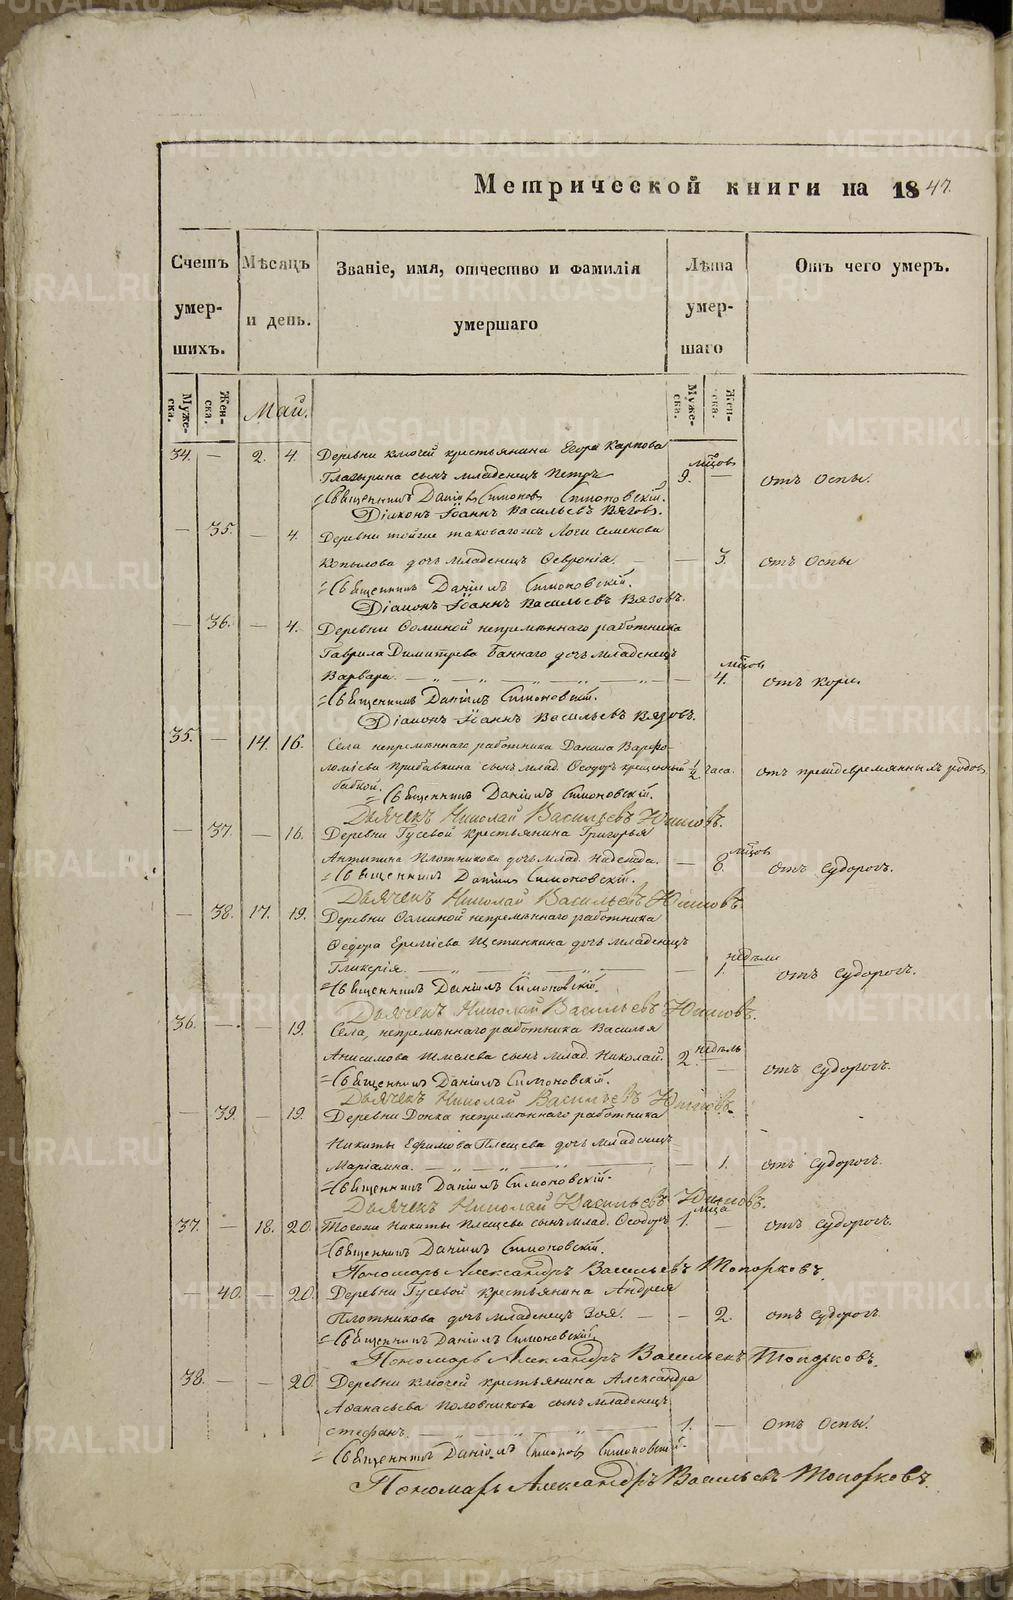 Метрической книги на 1847.
Счетъ умер-шихъ.
Мѣсяцъ и день.
Званіе, имя, отчество и фамилія умершаго
Лѣта умер-шаго
Отъ чего умеръ.
Муже-ска.
Жен-ска.
Май.
Муже-ска.
Жен-ска.
34. — 2. 4. Деревни Ключей крестьянина Егора Карпова
Глазырина сынъ младенецъ Петръ 9. мѣсцовъ — отъ Оспы.
Священникъ Даніилъ Симоновъ Симоновскій.
Діаконъ Іоаннъ Васильевъ Вязовъ.
— 35. — 4. Деревни тойже таковагожъ Семенова
Копылова дочь младенецъ Февронія. — — 3. отъ Оспы
Священникъ Даніилъ Симоновскій.
Діаконъ Іоаннъ Васильевъ Вязовъ.
— 36. — 4. Деревни Фоминой непремѣннаго работника
Гаврила Димитрева Баннаго дочь младенецъ
Варвара. — 4. мѣсцовъ отъ Кори.
Священникъ Даніилъ Симоновскій.
Діаконъ Іоаннъ Васильевъ Вязовъ.
35. — 14. 16. Села непремѣннаго работника Данила Варфо-
ломіева Прибавкина сынъ млад. Ѳеодоръ крещенный 1/2 часа. отъ преждевремянныхъ родовъ
бабкой.
Священникъ Даніилъ Симоновскій.
Дьячекъ Николай Васильевъ
— 37. — 16. Деревни Гусевой крестьянина Григорья
Антипина Плотникова дочь млад. Надежда. — мѣсцовъ отъ Судорогъ.
Священникъ Даніилъ Симоновскій.
Дьячекъ Николай Васильевъ
— 38. 17. 19. Деревни Фоминой непремѣннаго работника
Ѳедора Ереміева Щетинкина дочь младенецъ
Гликерія. — 1. недѣли отъ Судорогъ.
Священникъ Даніилъ Симоновскій.
Дьячекъ Николай Васильевъ
36. — — 19. Села, непремѣннаго работника Василья
Анисимова Шмелева сынъ млад. Николай. 2. недѣль — отъ Судорогъ.
Священникъ Даніилъ Симоновскій.
Дьячекъ Николай Васильевъ
— 39. — 19. Деревни непремѣннаго работника
Никиты Ефимова Плещева дочь младенецъ
Маріамна. — 1. отъ Судорогъ.
Священникъ Даніилъ Симоновскій.
Дьячекъ Николай Васильевъ
37. — 18. 20. Тогоже Никиты Плещева сынъ млад. Ѳеодоръ 1. мѣсца — отъ Судорогъ.
Священникъ Даніилъ Симоновскій.
Пономарь Александръ Васильевъ Топорковъ.
— 40. — 20. Деревни Гусевой крестьянина Андрея
Плотникова дочь младенецъ Зоя. — — 2. отъ Судорогъ
Священникъ Даніилъ Симоновскій.
Пономарь Александръ Васильевъ Топорковъ.
38. — — 20. Деревни Ключей крестьянина Александра
Афанасьева Половникова сынъ младенецъ
Стефанъ. — 1. — отъ Оспы.
Священникъ Даніилъ Симоновъ Симоновскій.
Пономарь Александръ Васильевъ Топорковъ.
METRIKI.GASO-URAL.RU